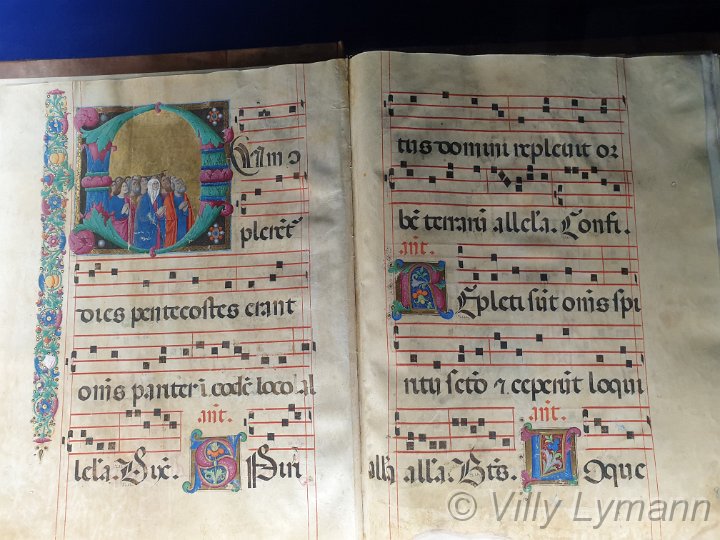 Cum cō
plerēt
dies pentecostes erant
onīs pariter ī eodē loco al
añt.
lel'a. Dix̄. Spiri
tus domini repleuit or
bē terrarū allel'a. Confi.
añt.
Repleti sūt onīs spi
ritu sctō ⁊ ceperūt loqui
añt.
all'a all'a. Bts̄. Loque
© Villy Lymann